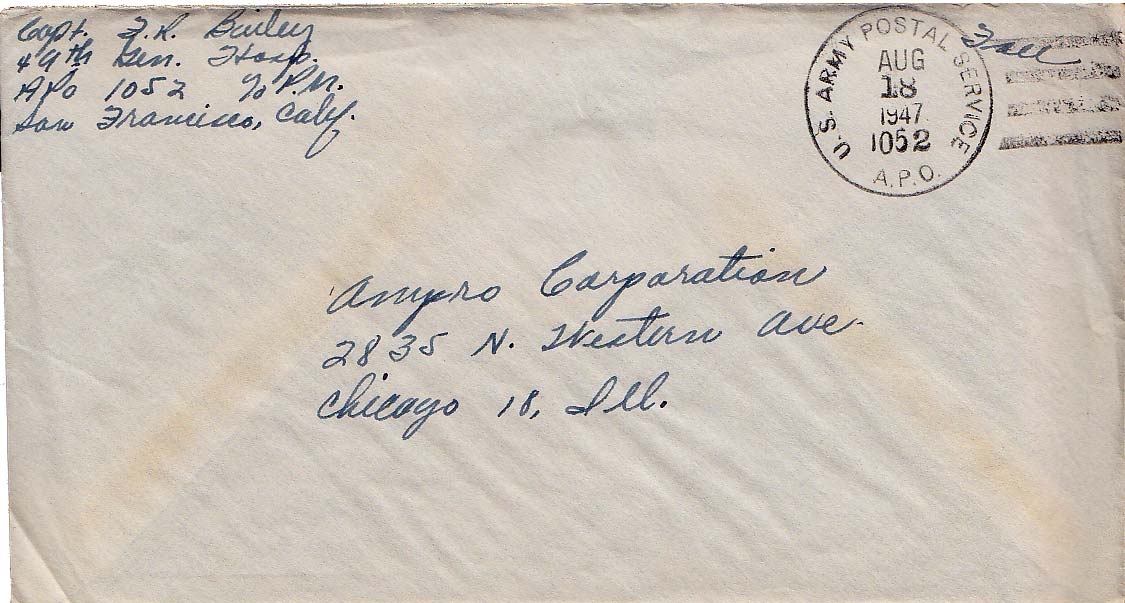 Capt. F. R. Bailey
49th Gen. Hosp.
APO 1052 % P.M.
San Francisco, Calif.
U.S. ARMY POSTAL SERVICE
AUG
18
1947
1052
A.P.O.
Free
Ampro Corporation
2835 N. Western Ave.
Chicago 18, Ill.